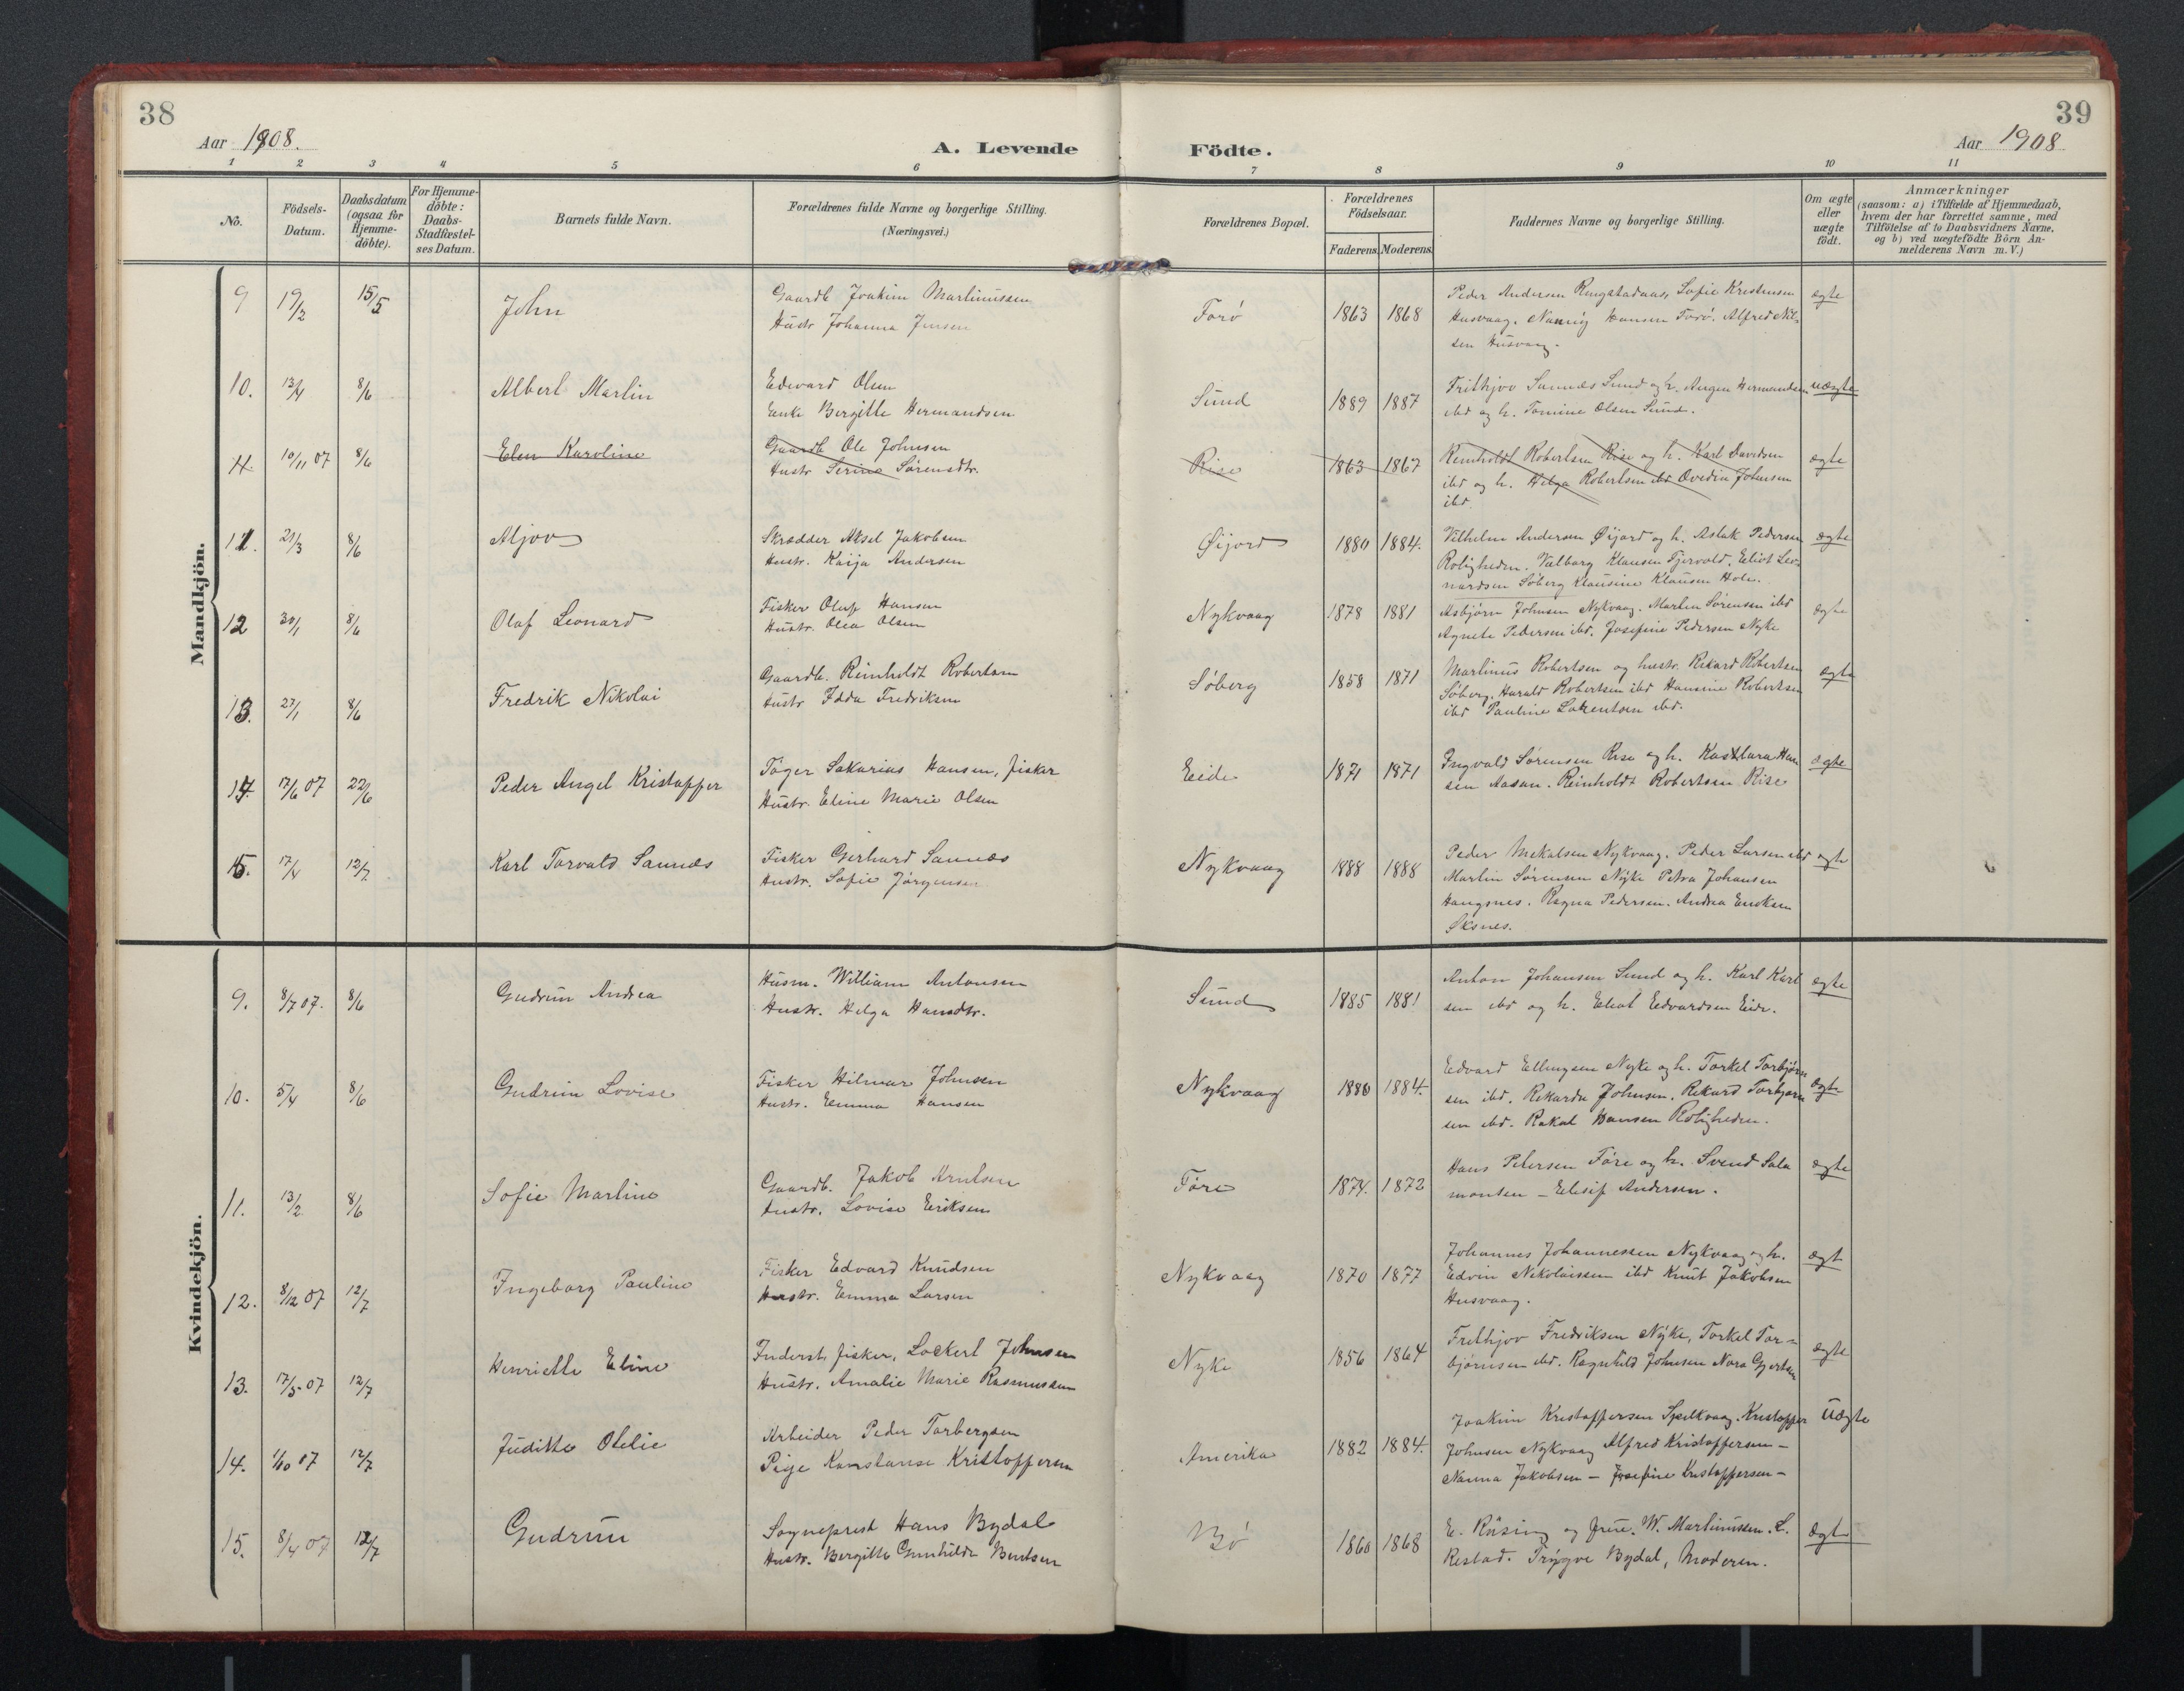 38
39
Aar 1908.
A. Levende Födte.
Aar 1908
1 2 3 4 5 6 7 8 9 10 11
No.
Födsels-Datum.
Daabsdatum (ogsaa for Hjemme-döbte).
For Hjemme-döbte: Daabs-Stadfæstel-ses Datum.
Barnets fulde Navn.
Forældrenes fulde Navne og borgerlige Stilling.
(Næringsvei.)
Forældrenes Bopæl.
Forældrenes Födselsaar.
Faderens. Moderens.
Faddernes Navne og borgerlige Stilling.
Om ægte eller uægte födt.
Anmærkninger
(saasom: a) i Tilfælde af Hjemmedaab,
hvem der har forrettet samme, med
Tilföielse af to Daabsvidners Navne,
og b) ved uægtefödte Börn An-
melderens Navn m. V.)
Mandkjön.
9 19/2 15/5 John
Gaardb Joakim Martinussen
Hustr Johanna Jensen
Forö 1863 1868
Peder Andersen Ringstadaas, Sofie Kristensen
Husvaag. Nanny Hansen Forö. Alfred Nil-
sen Husvaag.
ægte
10. 13/4 8/6 Albert Martin
Edvard Olsen
Enke Bergitte Hermandsen
Sund 1889 1887
Frithjov Sannæs Sund og h. Angen Hermandsen
ibd og h. Tomine Olsen Sund.
uægte
11. 10/11 07 8/6 Elen Karoline
Gaardb Ole Johnsen
Hustr Serine Sörensdtr.
Rise 1863 1867
Reinholdt Robertsen Rise og h. Karl Davidsen
ibd og h. Helga Robertsen ibd Ovedia Johnsen
ibd.
ægte
11. 21/3 8/6 Aljov
Skrædder Aksel Jakobsen
Hustr. Kaija Andersen
Öijord 1880 1884.
Vilhelm Andersen Öijord og h. Aslak Pedersen
Roligheden. Valborg Klausen Fjervold. Eliot Leo-
nardsen Söberg Klausine Klausen Hole.
ægte
12 30/1 8/6 Olaf Leonard
Fisker Oluf Hansen
Hustr. Olea Olsen
Nykvaag 1878 1881
Asbjörn Johnsen Nykvaag. Martin Sörensen ibd
Agnete Pedersen ibd. Josefine Pedersen Nyke
ægte
13. 27/1 8/6 Fredrik Nikolai
Gaardb. Reinholdt Robertsen
Hustr Idda Fredriksen
Söberg 1858 1871
Martinus Robertsen og hustr. Rikard Robertsen
Söberg. Harald Robertsen ibd Hansine Robertsen
ibd Pauline Lorentsen ibd.
ægte
14. 17/6 07 22/6 Peder Angel Kristoffer
Töger Sakarias Hansen, fisker
Hustr. Eline Marie Olsen
Eide 1871 1871
Ingvald Sörensen Rise og h. Kas Klara Han
sen Aasan. Reinholdt Robertsen Rise
ægte
15. 17/4 12/7 Karl Torvald Sannæs
Fisker Gerhard Sannæs
Hustr. Sofie Jörgensen
Nykvaag 1888 1888
Peder Mekalsen Nykvaag. Peder Larsen ibd
Martin Sörensen Nyke Petra Johansen
Haugsnes. Ragna Pedersen. Andrea Enoksen
Øksnes.
ægte
Kvindekjön.
9. 8/7 07. 8/6 Gudrun Andrea
Husm. William Antonsen
Hustr. Helga Hansdtr.
Sund 1885 1881
Anton Johansen Sund og h. Karl Karl
sen ibd og h. Eliot Edvardsen Eide.
ægte
10. 5/4 8/6 Gudrun Lovise
Fisker Hilmar Johnsen
Hustr. Emma Hansen
Nykvaag 1880 1884.
Edvard Ellingsen Nyke og h. Torkel Torbjörn
sen ibd. Rikarda Johnsen. Rikard Torbjörn
sen ibd. Rakal Hansen Roligheden.
ægte
11. 13/2 8/6 Sofie Martine
Gaardb. Jakob Arntsen
Hustr. Lovise Eriksen
Före 1874. 1872
Hans Petersen Före og h. Svend Sala
monsen – Elesif Andersen.
ægte
12. 8/12 07 12/7 Ingeborg Pauline
Fisker Edvard Knudsen
Hustr. Emma Larsen
Nykvaag 1870 1877
Johannes Johannessen Nykvaag og h.
Edvin Nikolaissen ibd Knut Jakobsen
Husvaag.
ægt
13. 17/5 07 12/7 Henriette Eline
Inderst, fisker, Lockert Johnsen
Hustr. Amalie Marie Rasmussen
Nyke 1856 1864
Frithjov Fredriksen Nyke, Torkel Tor-
björnsen ibd. Ragnhild Johnsen Nora Gjertsen
ægte
14. 1/10 07 12/7 Juditte Otelie
Arbeider Peder Torbergsen
Pige Konstanse Kristoffersen
Amerika 1882 1884.
Joakim Kristoffersen Spelkvaag. Kristoffer
Johnsen Nykvaag Alfred Kristoffersen –
Nanna Jakobsen – Josefine Kristoffersen –
Uægte
15. 8/4 07 12/7 Gudrun
Sogneprest Hans Bydal
Hustr. Bergitte Gunhilde Bentsen
Bö 1860 1868
E. Rösing og frue. W. Martinussen. L.
Restad. Trygve Bydal, Moderen.
ægte